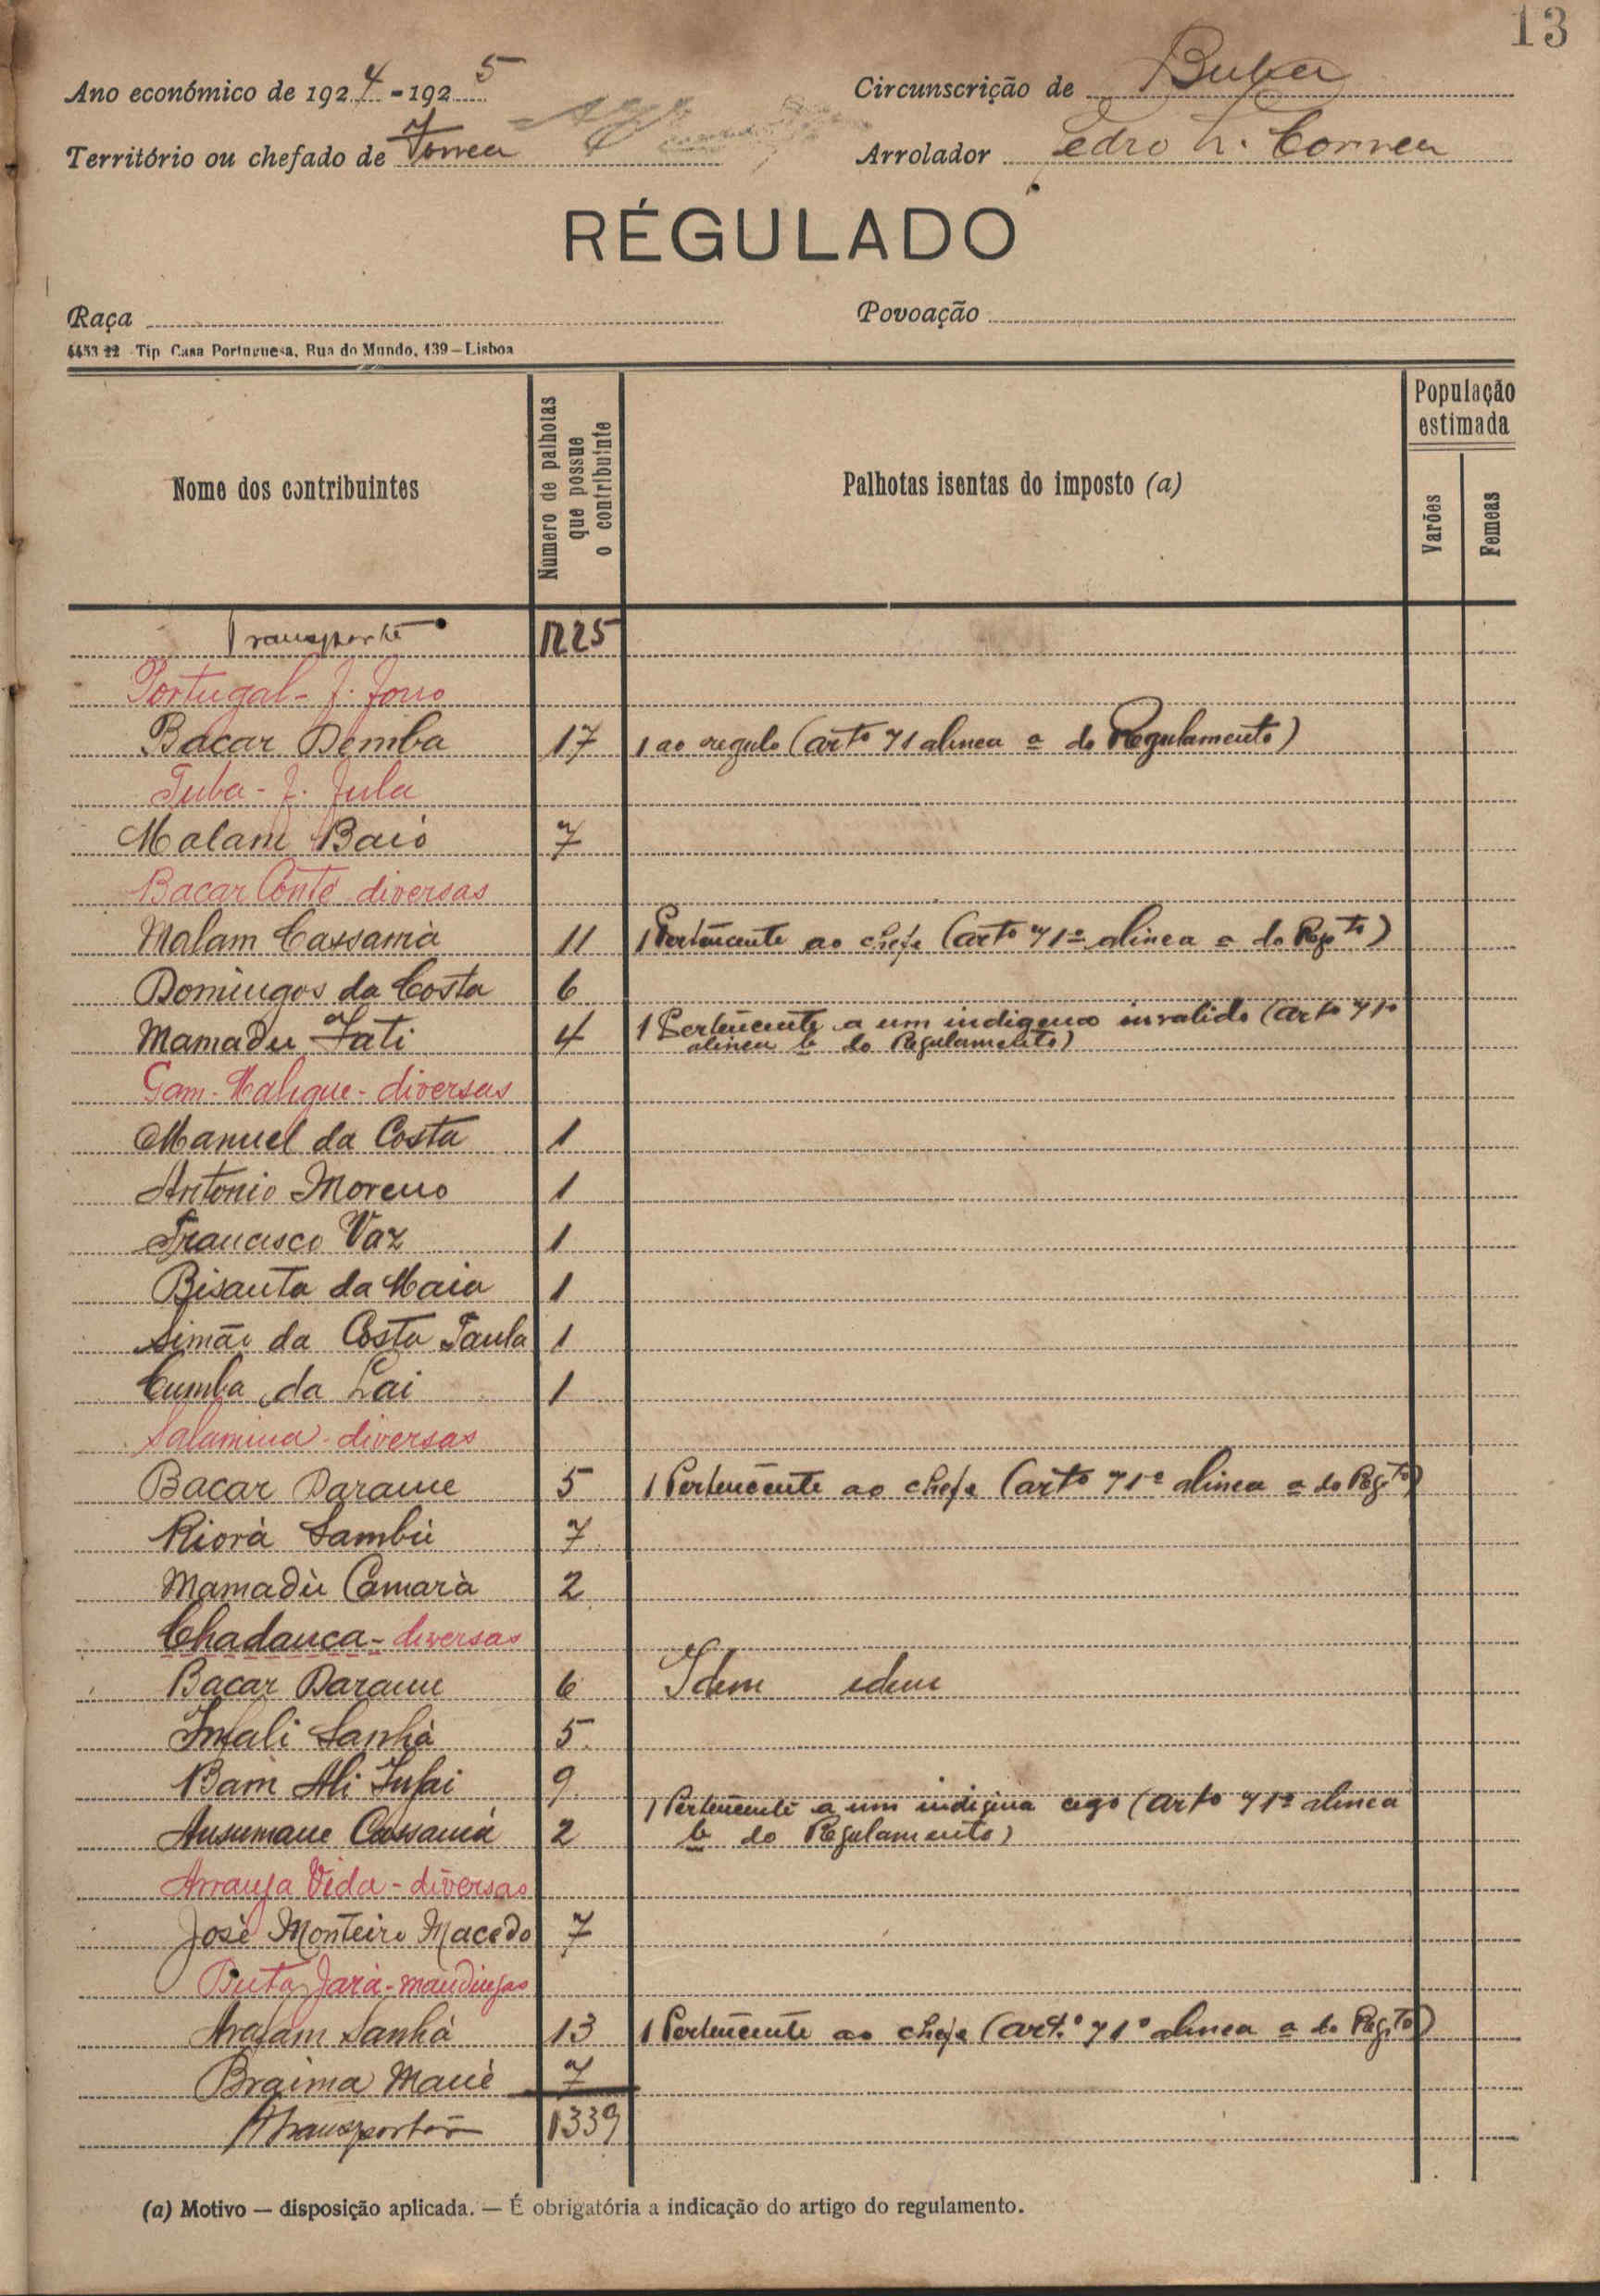 13
Ano económico de 1924-1925 Circunscrição de Buba
Território ou chefado de Forrea Arrolador Pedro H. Correa
RÉGULADO
Raça Povoação
4453 22 Tip Casa Portuguesa, Rua do Mundo, 139—Lisboa
Nome dos contribuintes
Numero de palhotas que possue o contribuinte
Palhotas isentas do imposto (a)
População estimada
Varões
Femeas
Transporte 1225
Portugal - f. forro
Bacar Demba 17 1 ao regulo (arto 71 alinea a do Regulamento)
Tuba - f. fula
Malam Baió 7
Bacar Conté diversas
Malam Cassamà 11 1 Pertencente ao chefe (arto 71º alinea a do Regto)
Domingos da Costa 6
Mamadu Fati 4 1 Pertencente a um indigena invalido (arto 71º
alinea b do Regulamento)
Gam-Malique - diversas
Manuel da Costa 1
Antonio Moreno 1
Francisco Vaz 1
Bisanta da Maia 1
Simão da Costa Paula 1
Cumba da Lai 1
Salamina - diversas
Bacar Darame 5 1 Pertencente ao chefe (arto 71º alinea a do Regto)
Riorà Sambù 7
Mamadù Camarà 2
Chadauca - diversas
Bacar Darame 6 Idem idem
Infali Sanhà 5
Bam Ali Jufai 9
1 Pertencente a um indigina cego (arto 71º alinea
Ansumane Cassamá 2 b do Regulamento)
Arranja Vida - diversas
José Monteiro Macedo 7
Buta Jarà - mandingas
Arafam Sanhá 13 1 Pertencente ao chefe (art.º 71º alinea a do Regto)
Braima Mané 7
Transportar 1339
(a) Motivo — disposição aplicada. — É obrigatória a indicação do artigo do regulamento.